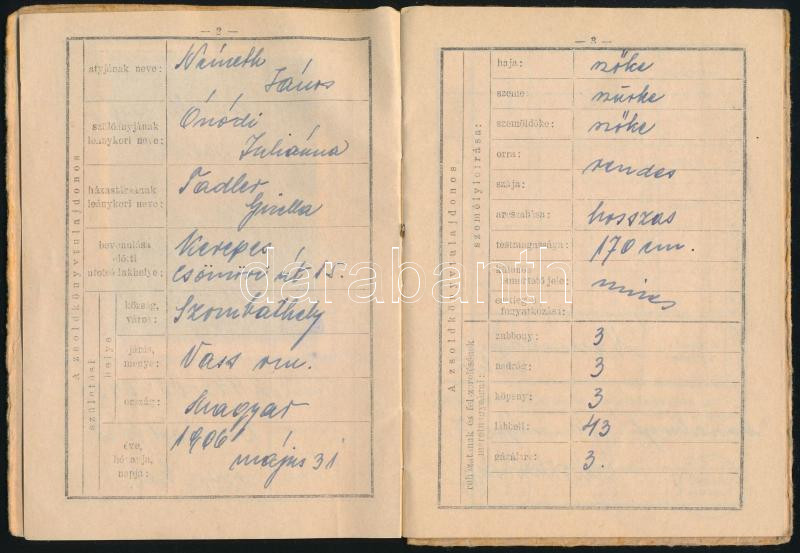 — 2 —
A zsoldkönyvtulajdonos
atyjának neve:
Németh
János
szülőanyjának
leánykori neve:
Ónódi
Juliánna
házastársának
leánykori neve:
Tadler
Gizella
bevonulása
előtti
utolsó lakhelye:
Kerepes
Csömöri út 15.
születési
helye
község,
város:
Szombathely
járás,
megye:
Vass vm.
ország:
Magyar
éve,
hónapja,
napja:
1906
május 31
— 3 —
A zsoldkönyvtulajdonos
személyleírása:
haja:
szőke
szeme:
szürke
szemöldöke:
szőke
orra:
rendes
szája:
arcszabása:
hosszas
testmagassága:
170 cm.
különös
ismertető jele:
nincs
esetleges
fogyatkozása:
ruházatának és felszerelésének
méretnagyságai:
zubbony:
3
nadrág:
3
köpeny:
3
lábbeli:
43
gázálarc:
3.
darabanth